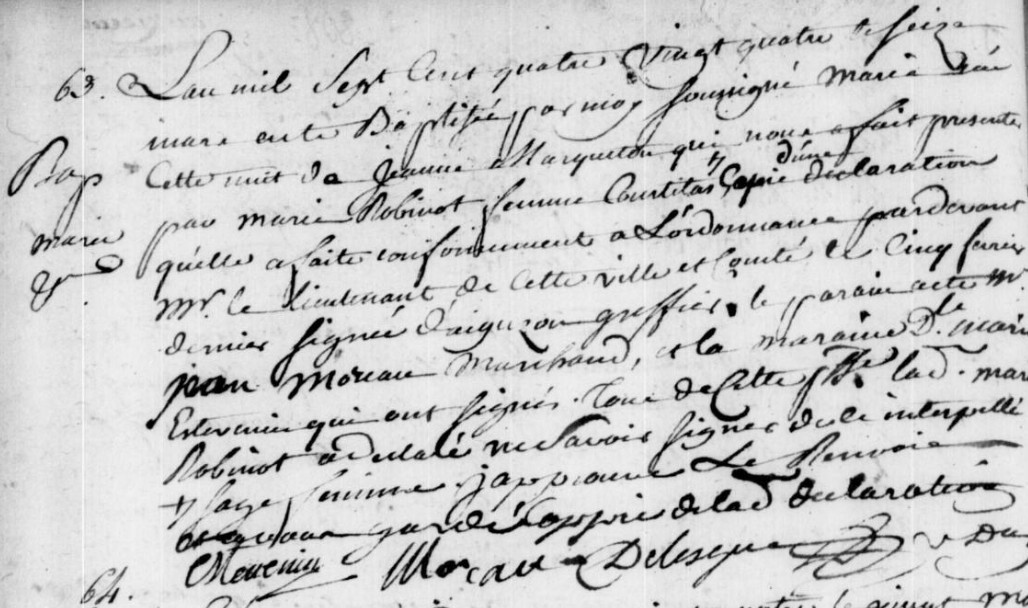 63. L'an mil Sept Cent quatre vingt quatre le seize
mars ete Baptisée par moy soussigné marie née
Bap Cette nuit de Jeanne Marqueton qui nous a fait presente
marie par marie Robinot femme Courtitas Copie d'une declaration
qu'elle a faite conformement a L'ordonnance pardevant
Mr. le Lieutenant de Cette ville et Comté le Cinq fevrier
dernier signée Daiguzon greffier. le parain a ete Mr
jean Moreau Marchand, et la maraine Dlle marie
Estevenin qui ont signés. Tous de Cette psse lad. mar
Robinot a declaré ne Savoir signer de ce interpellé
sage femme japprouve Le Renvoie
garde copie de lad declaration
Moreau Delesque
64.